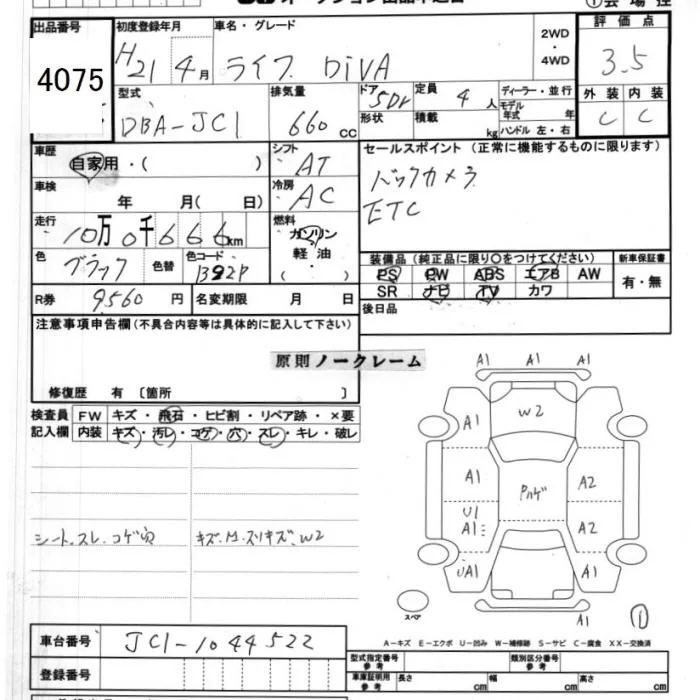 出品番号 初度登録年月 車名・グレード 2WD・4WD 評価点
4075 H21 4月 ライフ DiVA 3.5
型式 排気量 ドア 定員 ディーラー・並行 外装 内装
DBA-JC1 660cc 5Dr 4人 モデル年式 年 C C
形状 積載 kg ハンドル 左・右
車歴 シフト セールスポイント(正常に機能するものに限ります)
自家用・( ) AT バックカメラ
車検 冷房 ETC
年 月( 日) AC
走行 燃料
10万0千666km ガソリン
軽油
・( )
色 色替 色コード 装備品(純正品に限り○をつけてください) 新車保証書
ブラック B92P PS PW ABS エアB AW 有・無
SR ナビ TV カワ
R券 9560円 名変期限 月 日 後日品
注意事項申告欄(不具合内容等は具体的に記入して下さい)
原則ノークレーム
修復歴 有 〔箇所 〕
検査員 FW キズ・飛石・ヒビ割・リペア跡・×要
記入欄 内装 キズ・汚レ・コゲ・穴・スレ・キレ・破レ
シート.スレ.コゲ穴 キズ.M.スリキズ.W2
A1 A1 A1
A1 W2
A1 Pハゲ A2
U1
A1 A2
UA1 A1
A1
スペア ①
A-キズ E-エクボ U-凹み W-補修跡 S-サビ C-腐食 XX-交換済
車台番号 JC1-1044522
型式指定番号 参考 類別区分番号 参考
登録番号 車庫証明用 参考 長さ cm 幅 cm 高さ cm